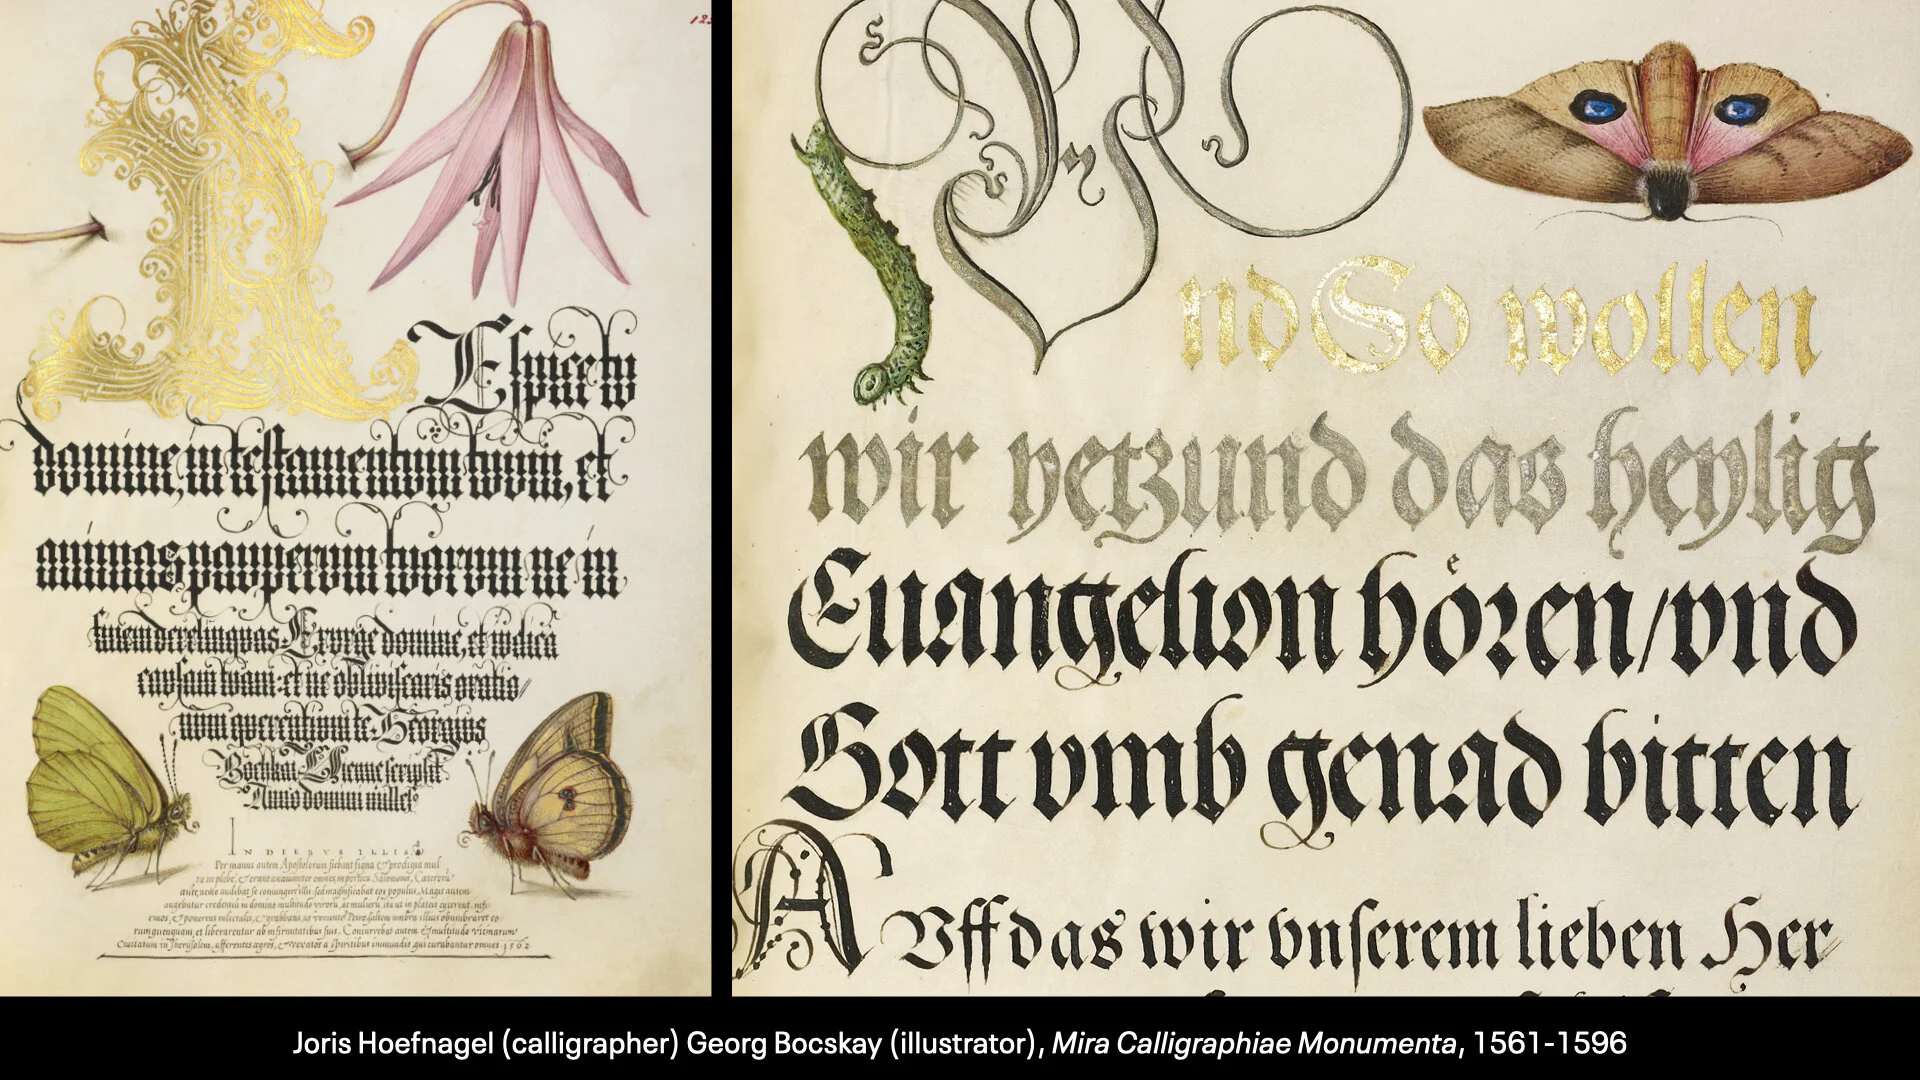 125
Espice tu
domine, in testamentum tuum, et
animas pauperum tuorum ne in
finem derelinquas. Exurge domine, et iudica
causam tuam: et ne obliviscaris oratio//
num querentium te. Georgius
Bochkai Vienne scripsit
Anno domini milless:
IN DIEBVS ILLIS.
Per manus autem Apostolorum fiebant signa & prodigia mul
ta in plebe, & erant unanimiter omnes in porticu Salomonis, Cæterorũ
autẽ nemo audebat se coniungere illis: sed magnificabat eos populus. Magis autem
augebatur credentiũ in domino multitudo virorũ, ac mulierũ, ita ut in plateis eijcerent infir
mos, & ponerent in lectulis, & grabbatis, ut veniente Petro saltem umbra illius obumbraret eo
rum quenquam, et liberarentur ab infirmitatibus suis. Concurrebat autem & multitudo vicinarum
Civitatum in Iherusalem, afferentes ægros, & vexatos a spiritibus immundis, qui curabantur omnes. 1562
Vnd So wollen
wir yetzund das heylig
Euangelion hoͤren/vnd
Gott vmb genad bitten
AVff das wir vnserem lieben Her
Joris Hoefnagel (calligrapher) Georg Bocskay (illustrator), Mira Calligraphiae Monumenta, 1561-1596